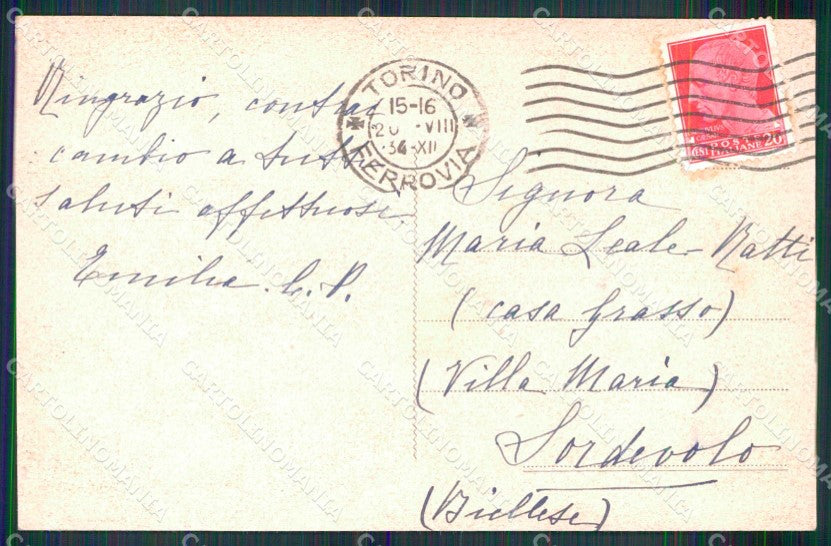 Ringrazio, contrac
cambio a tutti
saluti affettuosi.
Emilia. C. P.
TORINO
15-16
20 -VIII
34-XII
FERROVIA
POSTE ITALIANE 20
Signora
Maria Leale-Ratti
(casa Grasso)
(Villa Maria)
Sordevolo
(Biellese)
CARTOLINOMANIA